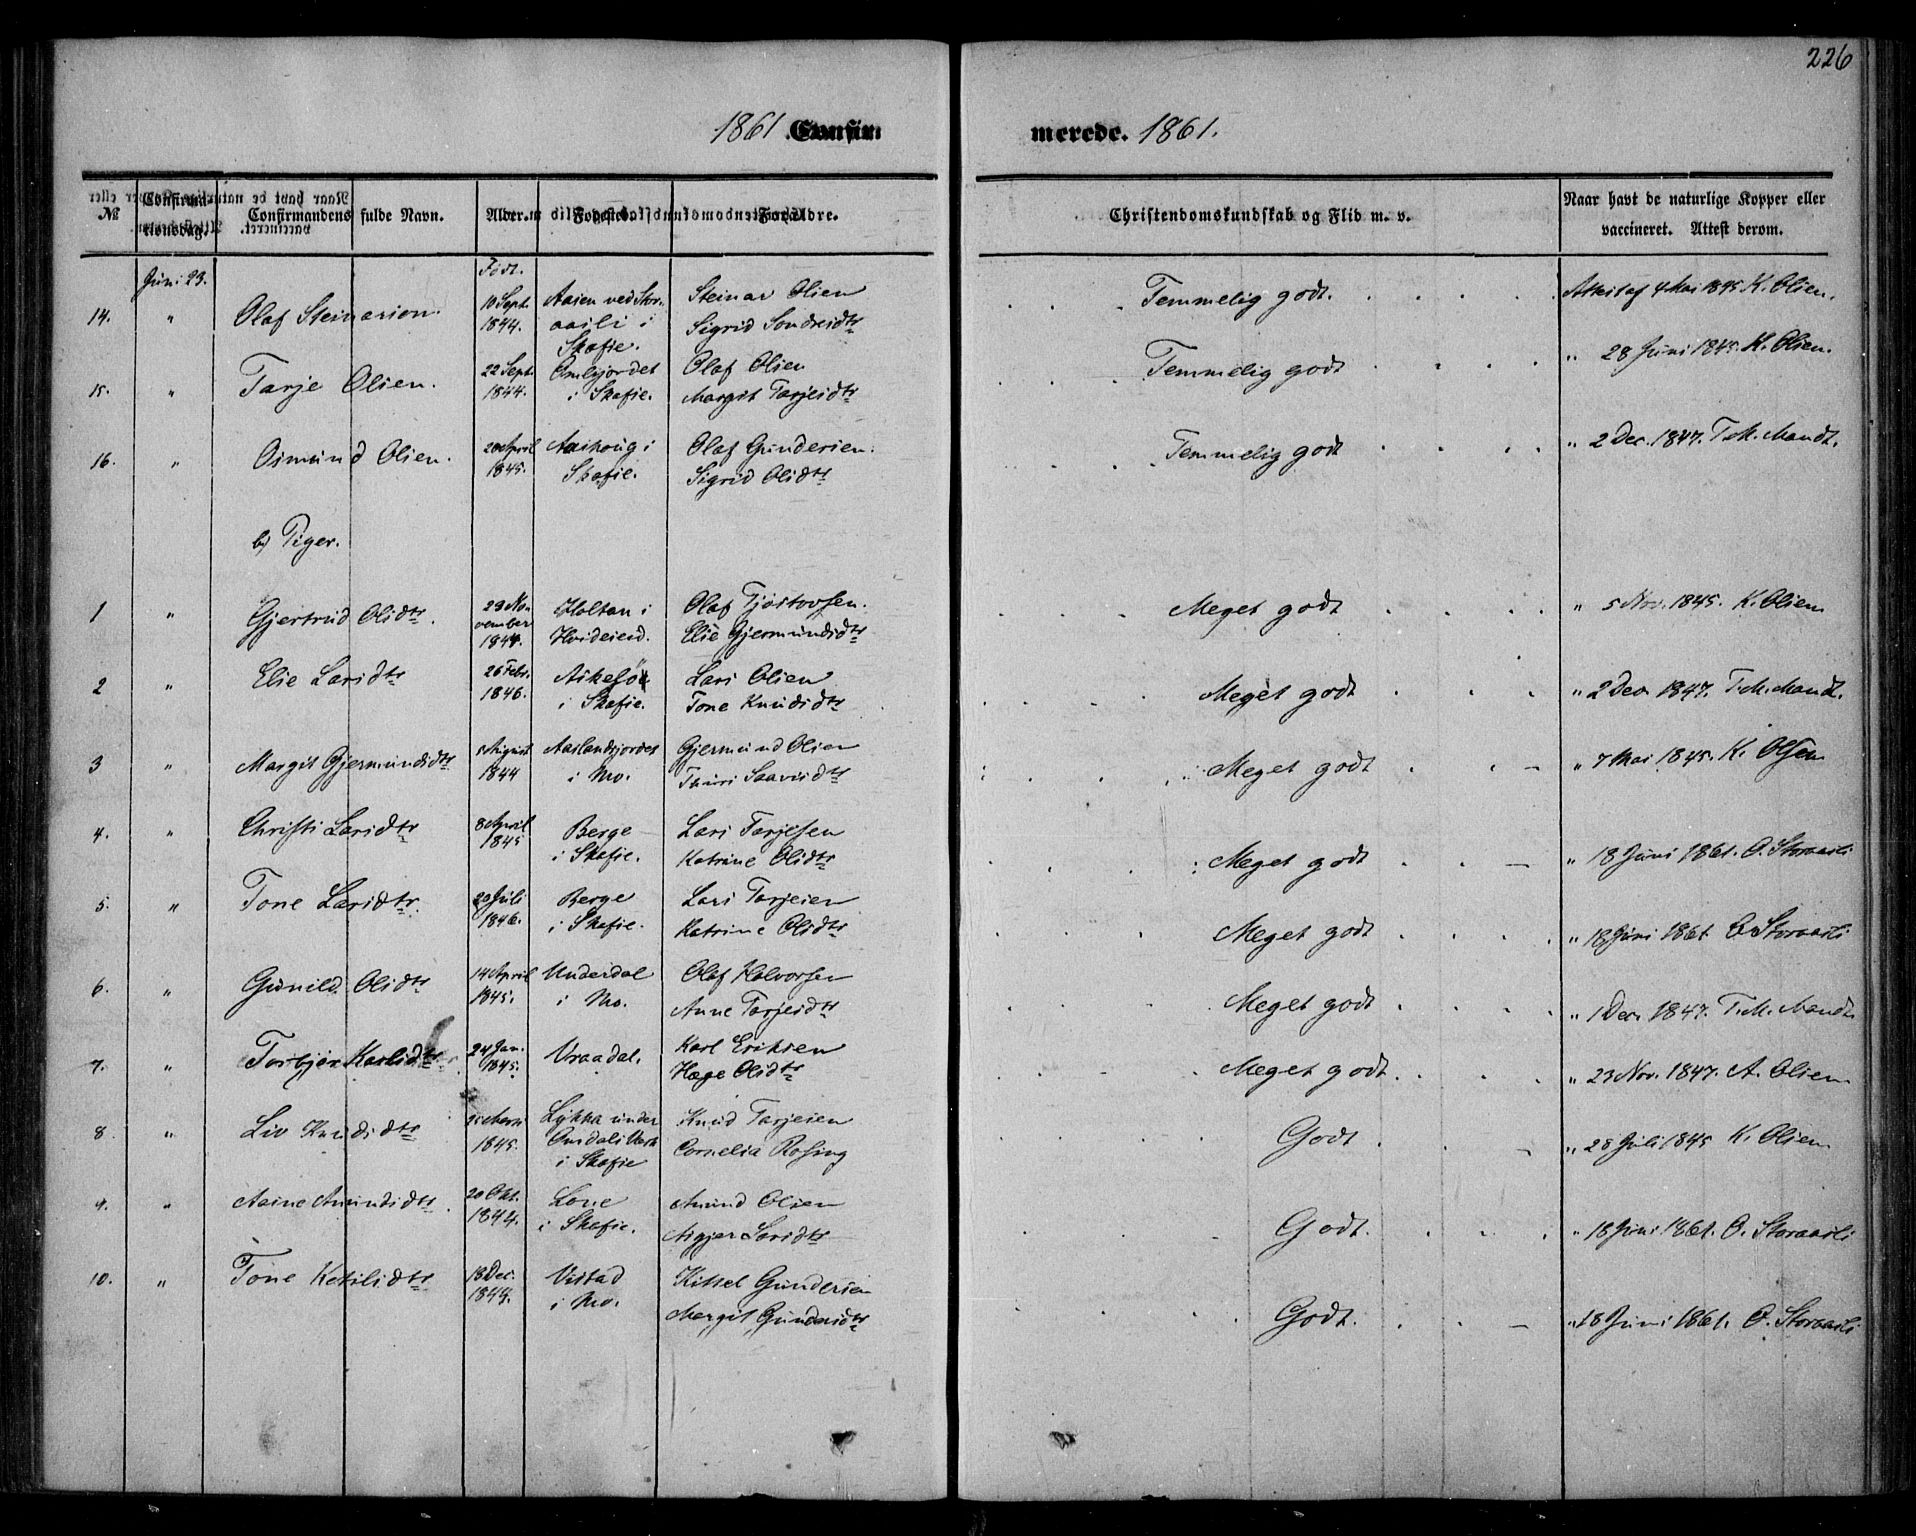 226
1861 Confir- merede. 1861.
№ Confirmationsdag. Confirmandens fulde Navn. Alder. Fødested. Forældre. Christendomskundskab og Flid m. v. Naar havt de naturlige Kopper eller vaccineret. Attest derom.
Juni 23. Født.
14. " Olaf Steinarsen. 10 Sept. 1844. Aasen ved Storaasli i Skafse. Steinar Olsen Sigrid Sondresdtr Temmelig godt. Attest af 4 Mai 1845 K. Olsen.
15. " Tarje Olsen. 22 Sept. 1844. Omlijordet i Skafse. Olaf Olsen Margit Tarjeisdtr Temmelig godt " 28 Juni 1845. K. Olsen.
16. " Osmund Olsen. 20 April 1845. Aashoug i Skafse. Olaf Gundersen. Sigrid Olsdtr Temmelig godt " 2 Dec. 1847. T. M. Mandt.
b) Piger.
1 " Gjertrud Olsdtr. 23 November 1844. Holtan i Hvideseid. Olaf Tjøstovsen. Elise Gjermundsdtr Meget godt " 5 Nov. 1845. K. Olsen
2 " Elie Larsdtr 26 Febr. 1846. i Skafse. Lars Olsen Tone Knudsdtr Meget godt " 2 Dec. 1847. T. M. Mandt.
3 " Margit Gjermundsdtr August 1844 Aaslandsjordet i Mo. Gjermund Olsen Thuri Saavesdtr Meget godt " 7 Mai 1845. K. Olsen
4. " Christi Larsdtr 8 April 1845 Berge i Skafse. Lars Tarjesen Katrine Olsdtr Meget godt " 18 Juni 1861. O. Storaasli
5. " Tone Larsdtr. 20 Juli 1846. Berge i Skafse. Lars Tarjeisen Katrine Olsdtr Meget godt " 18 Juni 1861. O. Storaasli
6. " Gunild Olsdtr 14 April 1845. Underdal i Mo. Olaf Halvorsen Anne Tarjeisdtr Meget godt " 1 Dec. 1847. T. M. Mandt
7. " Torbjør Karlsdtr 24 Jan. 1845. Vraadal. Karl Eriksen Hæge Olsdtr Meget godt. " 23 Nov. 1847. A. Olsen
8. " Liv Knudsdtr 1845. Lykka under Omdals Værk i Skafse Knud Tarjeisen Cornelia Rosing Godt " 28 Juli 1845 K. Olsen
9. " Aasne Amundsdtr. 20 Okt. 1844. i Skafse. Amund Olsen Aigjer Larsdtr Godt. " 18 Juni 1861. O. Storaasli
10. " Tone Ketilsdtr 18 Dec. 1844. Vistad i Mo. Kittel Gundersen Margit Gundersdtr Godt. " 18 Juni 1861. O. Storaasli